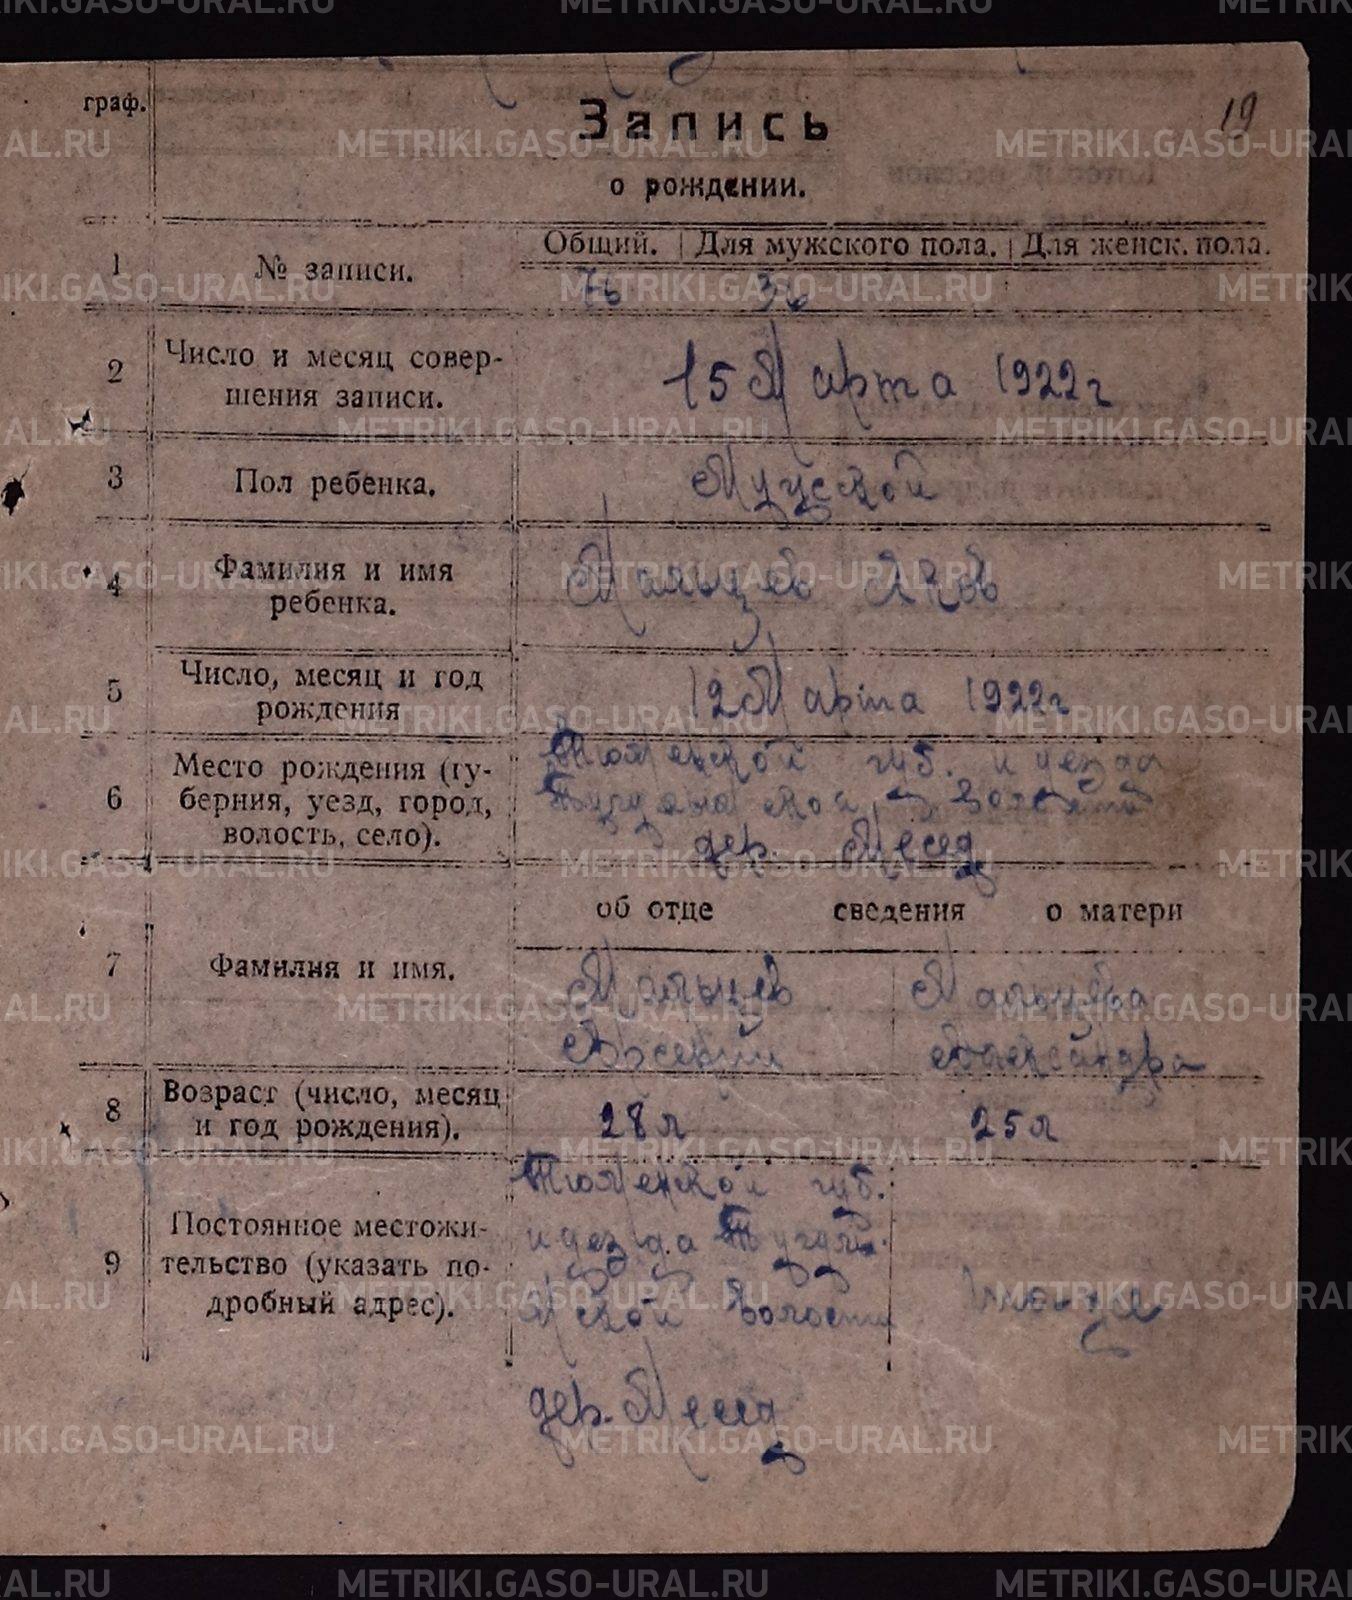 граф.
Запись
19
о рождении.
1
№ записи.
Общий. | Для мужского пола. | Для женск. пола.
76 36
2
Число и месяц совер-
шения записи.
15 Марта 1922 г
3
Пол ребенка.
Мужской
4
Фамилия и имя
ребенка.
Мальцев Яков
5
Число, месяц и год
рождения
12 Марта 1922 г
6
Место рождения (гу-
берния, уезд, город,
волость, село).
Тюменской губ. и уезда
волости
дер. Месед
об отце сведения о матери
7
Фамилия и имя.
Мальцев
Арсений
Мальцева
Александра
8
Возраст (число, месяц
и год рождения).
28 л
25 л
9
Постоянное местожи-
тельство (указать по-
дробный адрес).
Тюменской губ.
и уезда Тугулы-
мской волости
дер. Месед
METRIKI.GASO-URAL.RU